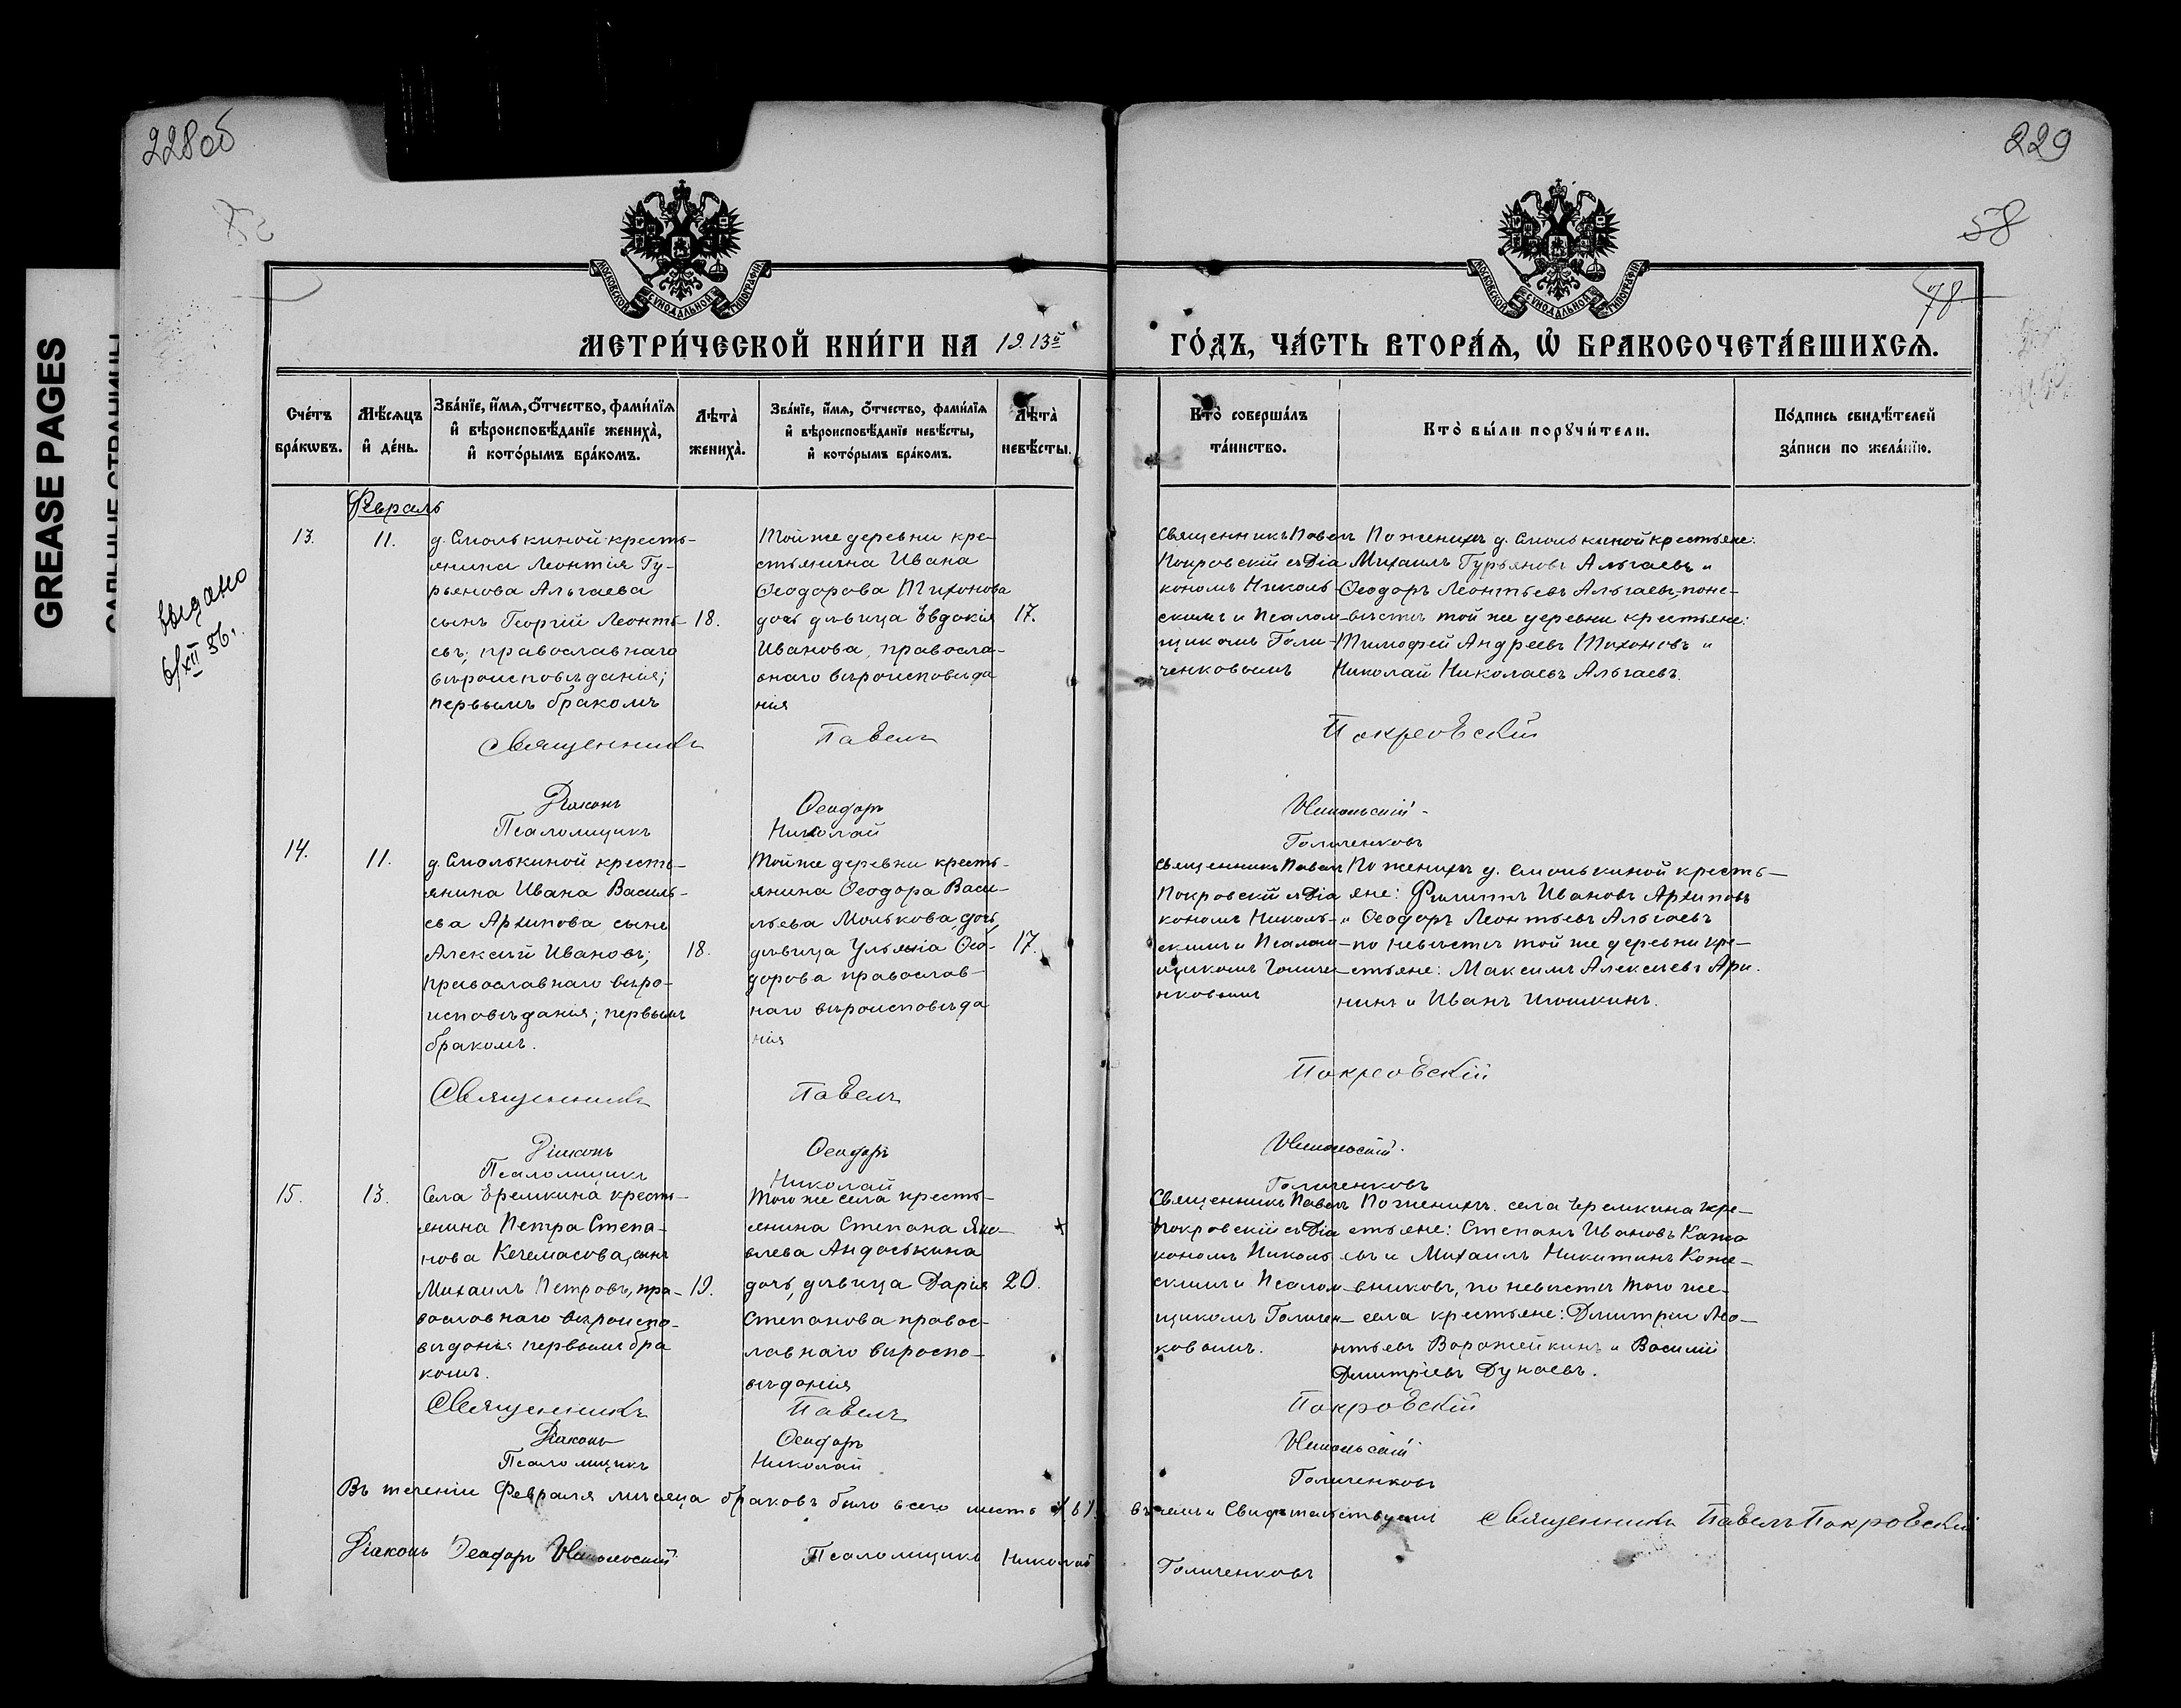 228об
229
58
78.
GREASE PAGES
выдано
6/XII 56.
МОСКОВСКОЙ СѴНОДАЛЬНОЙ ТИПОГРАФІИ
МОСКОВСКОЙ СѴНОДАЛЬНОЙ ТИПОГРАФІИ
МЕТРИ́ЧЕСКОЙ КНИ́ГИ НА 1913й ГО́ДЪ, ЧА́СТЬ ВТОРА́Ѧ, Ѡ҆ БРАКОСОЧЕТА́ВШИХСѦ.
Сче́тъ бра́кѡвъ.
Мѣ́сяцъ и҆ де́нь.
Зва́нїе, и҆́мѧ, ѻ҆́тчество, фами́лїѧ
и҆ вѣроисповѣ́данїе жениха̀,
и҆ кото́рымъ бра́комъ.
Лѣта̀ жениха̀.
Зва́нїе, и҆́мѧ, ѻ҆́тчество, фами́лїѧ
и҆ вѣроисповѣ́данїе невѣ́сты,
и҆ кото́рымъ бра́комъ.
Лѣта̀ невѣ́сты.
Кто̀ соверша́лъ та́инство.
Кто̀ бы́ли порꙋчи́тели.
По́дпись свидѣ́телей
за́писи по жела́нїю.
Февраль
13.
11.
д. Смолькиной кресть-
янина Леонтія Гу-
рьянова Альгаева
сынъ Георгій Леонть-
евъ; православнаго
вѣроисповѣданія;
первымъ бракомъ
18.
Той же деревни кре-
стьянина Ивана
Ѳеодорова Тихонова
дочь дѣвица Евдокія
Иванова, правосла-
внаго вѣроисповѣда
нія
17.
Священникъ Павелъ
Покровскій съ Діа
кономъ Николь
скимъ и Псалом-
щикомъ Голи-
ченковымъ
По женихѣ д. Смолькиной крестьяне:
Михаилъ Гурьяновъ Альгаевъ и
Ѳеодоръ Леонтьевъ Альгаевъ, по не-
вѣстѣ той же деревни крестьяне:
Тимофей Андреевъ Тихоновъ и
Николай Николаевъ Альгаевъ.
Священникъ Павелъ Покровскій
Діаконъ Ѳеодоръ Никольскій
Псаломщикъ Николай Голиченковъ
14.
11.
д. Смолькиной кресть-
янина Ивана Василь-
ева Архипова сынъ
Алексѣй Ивановъ;
православнаго вѣро-
исповѣданія; первымъ
бракомъ.
18.
Той же деревни кресть-
янина Ѳеодора Васи-
льева Молькова, дочь,
дѣвица Ульянія Ѳео-
дорова православ-
наго вѣроисповѣда
нія
17.
Священникъ Павелъ
Покровскій съ Діа
кономъ Николь-
скимъ и Псалом-
щикомъ Голиче-
нковымъ
По женихѣ д. Смолькиной кресть-
яне: Филиппъ Ивановъ Архиповъ
и Ѳеодоръ Леонтьевъ Альгаевъ
по невѣстѣ той же деревни кре-
стьяне: Максимъ Алексѣевъ Ари.
нинъ и Иванъ Игошкинъ.
Священникъ Павелъ Покровскій
Діаконъ Ѳеодоръ Никольскій.
Псаломщикъ Николай Голиченковъ
15.
13.
Села Еремкина кресть-
янина Петра Степа-
нова Кечемасова, сынъ
Михаилъ Петровъ, пра-
вославнаго вѣроиспо-
вѣданія первымъ бра
комъ.
19.
Того же села кресть-
янина Степана Яко-
влева Андоськина
дочь, дѣвица Дарія
Степанова правос-
лавнаго вѣроспо-
вѣданія
20.
Священникъ Павелъ
Покровскій съ Діа
кономъ Николь
скимъ и Псалом
щикомъ Голичен-
ковымъ.
По женихѣ. села Еремкина кре-
стьяне: Степанъ Ивановъ Ката
евъ и Михаилъ Никитинъ Коже-
вниковъ, по невѣстѣ того же-
села крестьяне: Дмитрій Лео-
нтьевъ Ворожейкинъ и Василій
Дмитріевъ Дунаевъ.
Священникъ Павелъ Покровскій
Діаконъ Ѳеодоръ Никольскій
Псаломщикъ Николай Голиченковъ
Въ теченіи Февраля мѣсяца браковъ было всего шесть (6). въ чемъ и Свидѣтельствуемъ Священникъ Павелъ Покровскій
Діаконъ Ѳеодоръ Никольскій Псаломщикъ Николай Голиченковъ